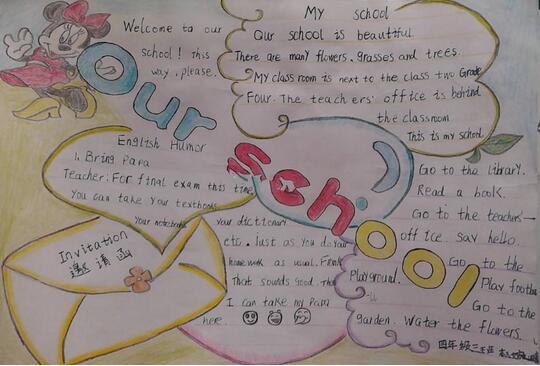 Welcome to our
school! This
way, please.
My school
Our school is beautiful.
There are many flowers, grasses and trees.
My classroom is next to the class two Grade
Four. The teachers' office is behind
the classroom
This is my school
Our school
English Humor
1. Bring Papa
Teacher: For final exam this time
You can take your textbooks
your notebooks
your dictionary
etc. Just as you do your
homework as usual.
That sounds good. then
I can take my Papa
here.
Invitation
邀请函
Go to the library.
Read a book.
Go to the teachers'
office. say hello.
Go to the
Playground. Play footba
Go to the
garden. Water the flowers.
四年级三班